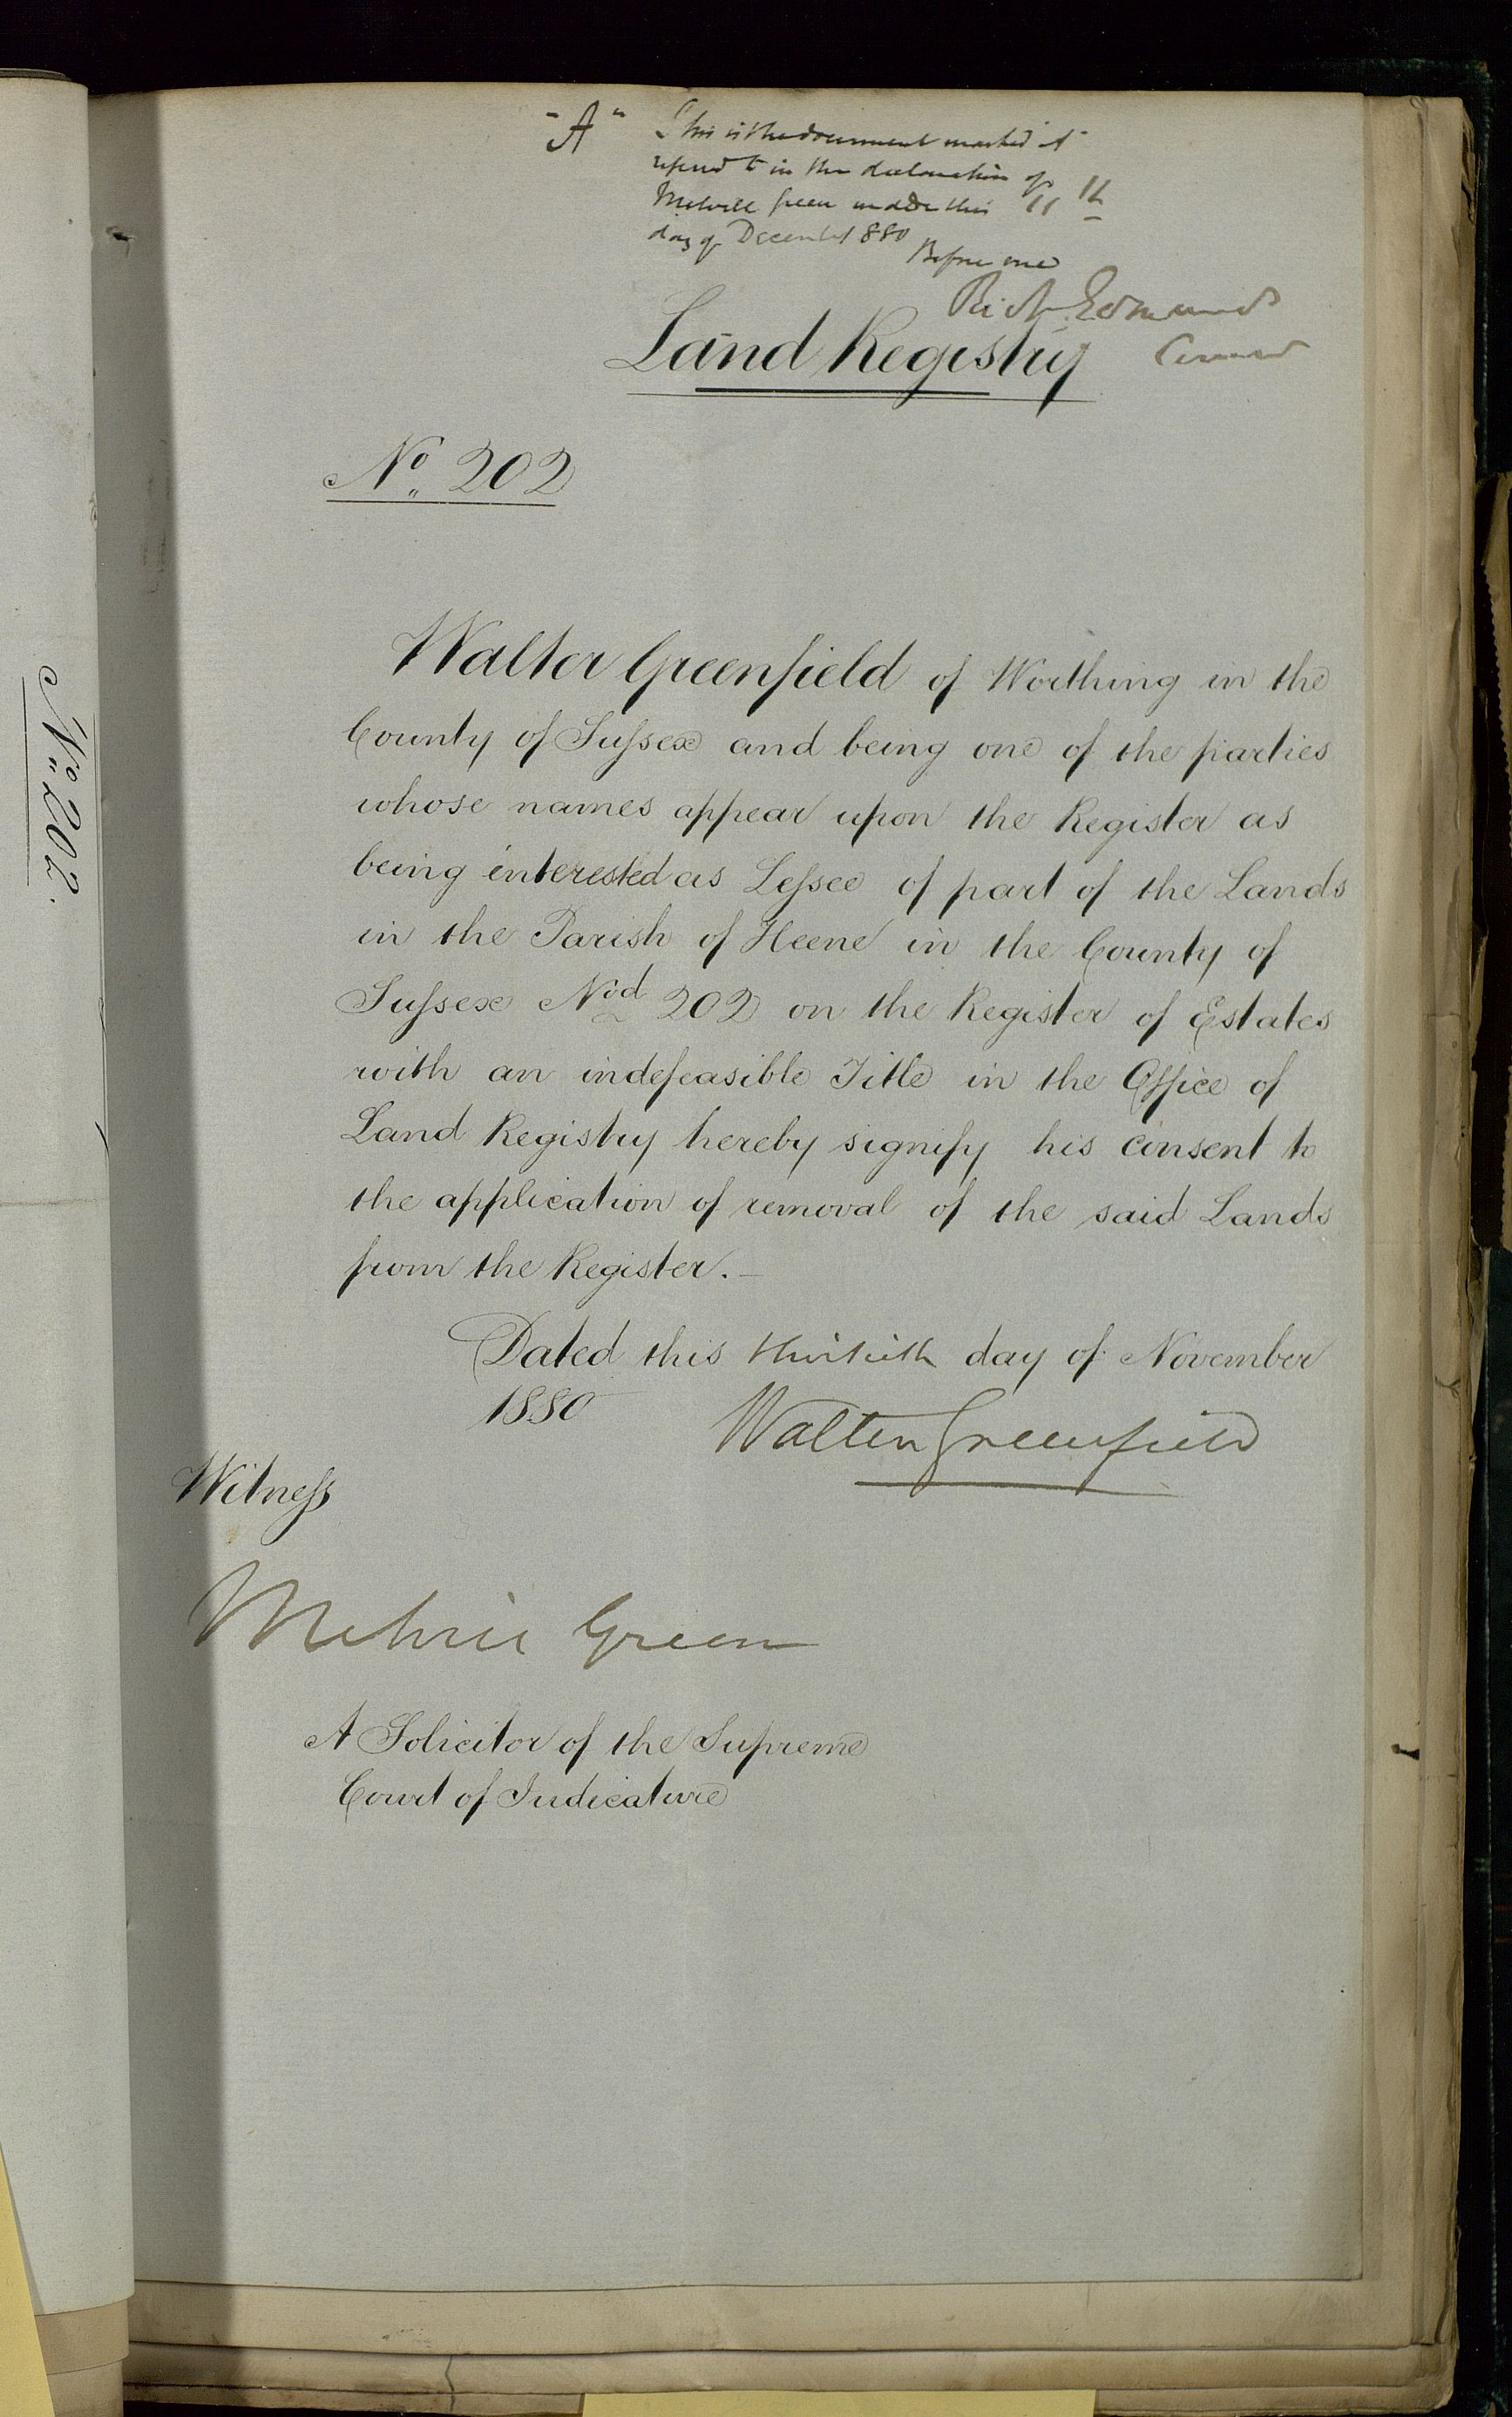 "A" This is the document marked A
referred to in the declaration of
Melvill Green made this 11th
day of December 1880
Before me
Richd Edmunds
Land Registry
No. 202
Walter Greenfield of Worthing in the
County of Sussex and being one of the parties
whose names appear upon the Register as
being interested as Lessee of part of the Lands
in the Parish of Heene in the County of
Sussex Nod 202 on the Register of Estates
with an indefeasible Title in the Office of
Land Registry hereby signify his consent to
the application of removal of the said Lands
from the Register.—
Dated this thirtieth day of November
1880
Walter Greenfield
Witness
Melvill Green
A Solicitor of the Supreme
Court of Judicature
No. 202.